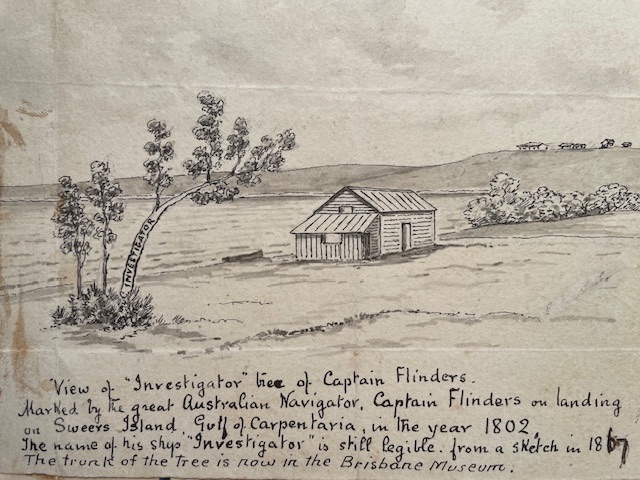 INVESTIGATOR
"View of "Investigator" tree of Captain Flinders.
Marked by the great Australian Navigator, Captain Flinders on landing
on Sweers Island, Gulf of Carpentaria, in the year 1802,
The name of his ship "Investigator" is still legible. from a sketch in 1867
The trunk of the Tree is now in the Brisbane Museum.